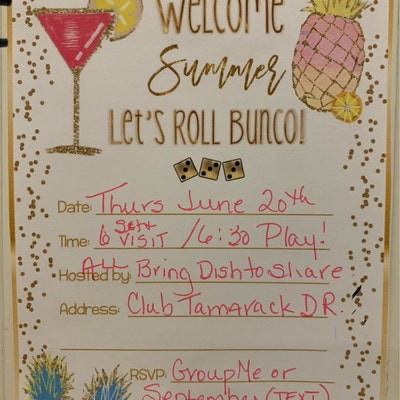 Welcome
Summer
Let's Roll Bunco!
Date: Thurs June 20th
Time: 6 Set & VISIT / 6:30 Play!
Hosted by: All Bring Dish to share
Address: Club Tamarack DR.
RSVP: GroupMe or
September (TEXT)